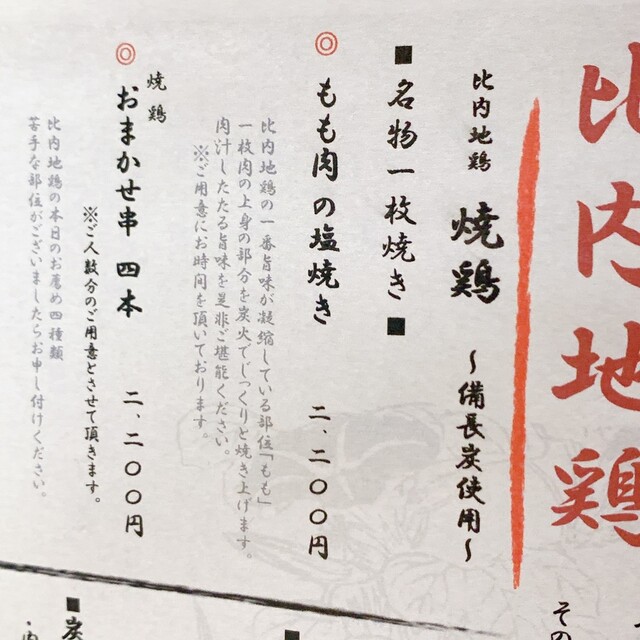 比内地鶏
比内地鶏 焼鶏 ～備長炭使用～
■名物一枚焼き■
◎もも肉の塩焼き 二、二〇〇円
比内地鶏の一番旨味が凝縮している部位「もも」
一枚肉の上身の部分を炭火でじっくりと焼き上げます。
肉汁したたる旨味を是非ご堪能ください。
※ご用意にお時間を頂いております。
◎焼鶏 おまかせ串 四本 二、二〇〇円
※ご人数分のご用意とさせて頂きます。
比内地鶏の本日のお薦め四種類
苦手な部位がございましたらお申し付けください。
その
■炭